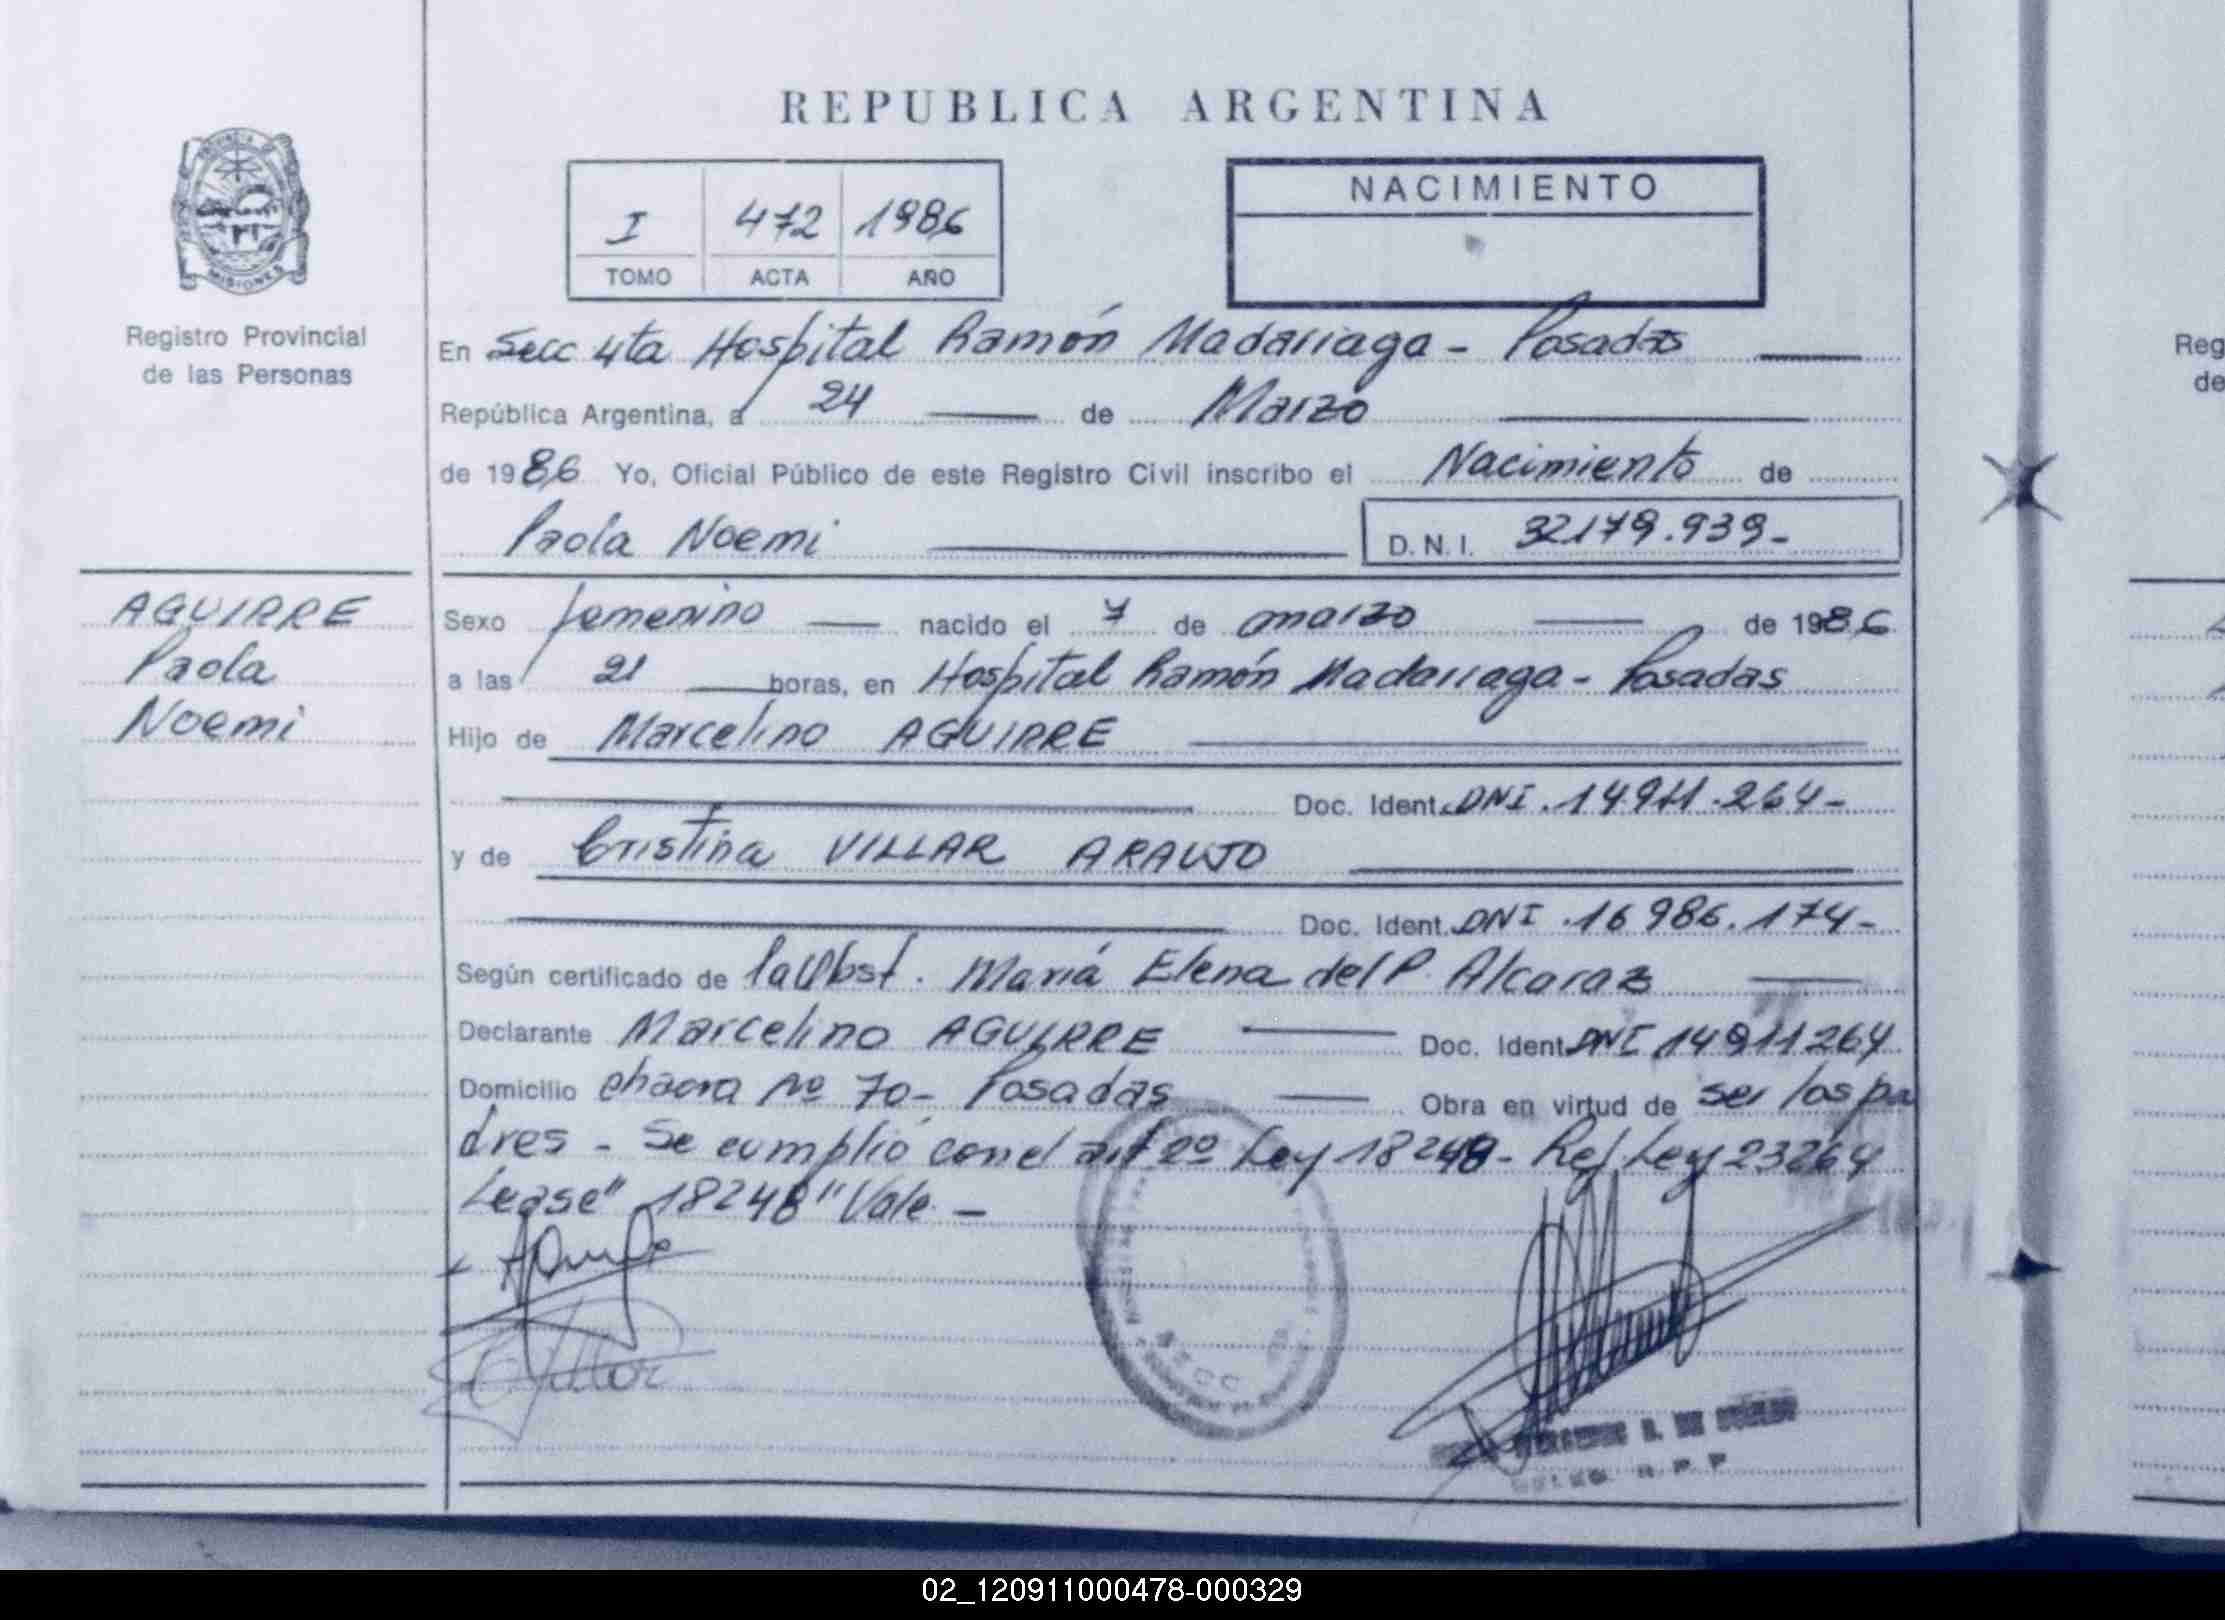 REPUBLICA ARGENTINA
PROVINCIA DE
MISIONES
Registro Provincial
de las Personas
I 472 1986
TOMO ACTA AÑO
NACIMIENTO
En Secc 4ta Hospital Ramón Madariaga - Posadas
República Argentina, a 24 de Marzo
de 1986 Yo, Oficial Público de este Registro Civil inscribo el Nacimiento de
Paola Noemi D.N.I. 32179.939-
AGUIRRE
Paola
Noemi
Sexo femenino nacido el 7 de marzo de 1986
a las 21 horas, en Hospital Ramón Madariaga - Posadas
Hijo de Marcelino AGUIRRE
Doc. Ident. DNI. 14911.264-
y de Cristina VILLAR ARAUJO
Doc. Ident. DNI. 16986.174-
Según certificado de la Obst. María Elena del P. Alcaraz
Declarante Marcelino AGUIRRE Doc. Ident. DNI 14911264
Domicilio chacra Nº 70- Posadas Obra en virtud de ser los pa
dres - Se cumplió con el art 2º Ley 18248- Ref Ley 23264
Lease" 18248" Vale -
Reg
de
02_120911000478-000329